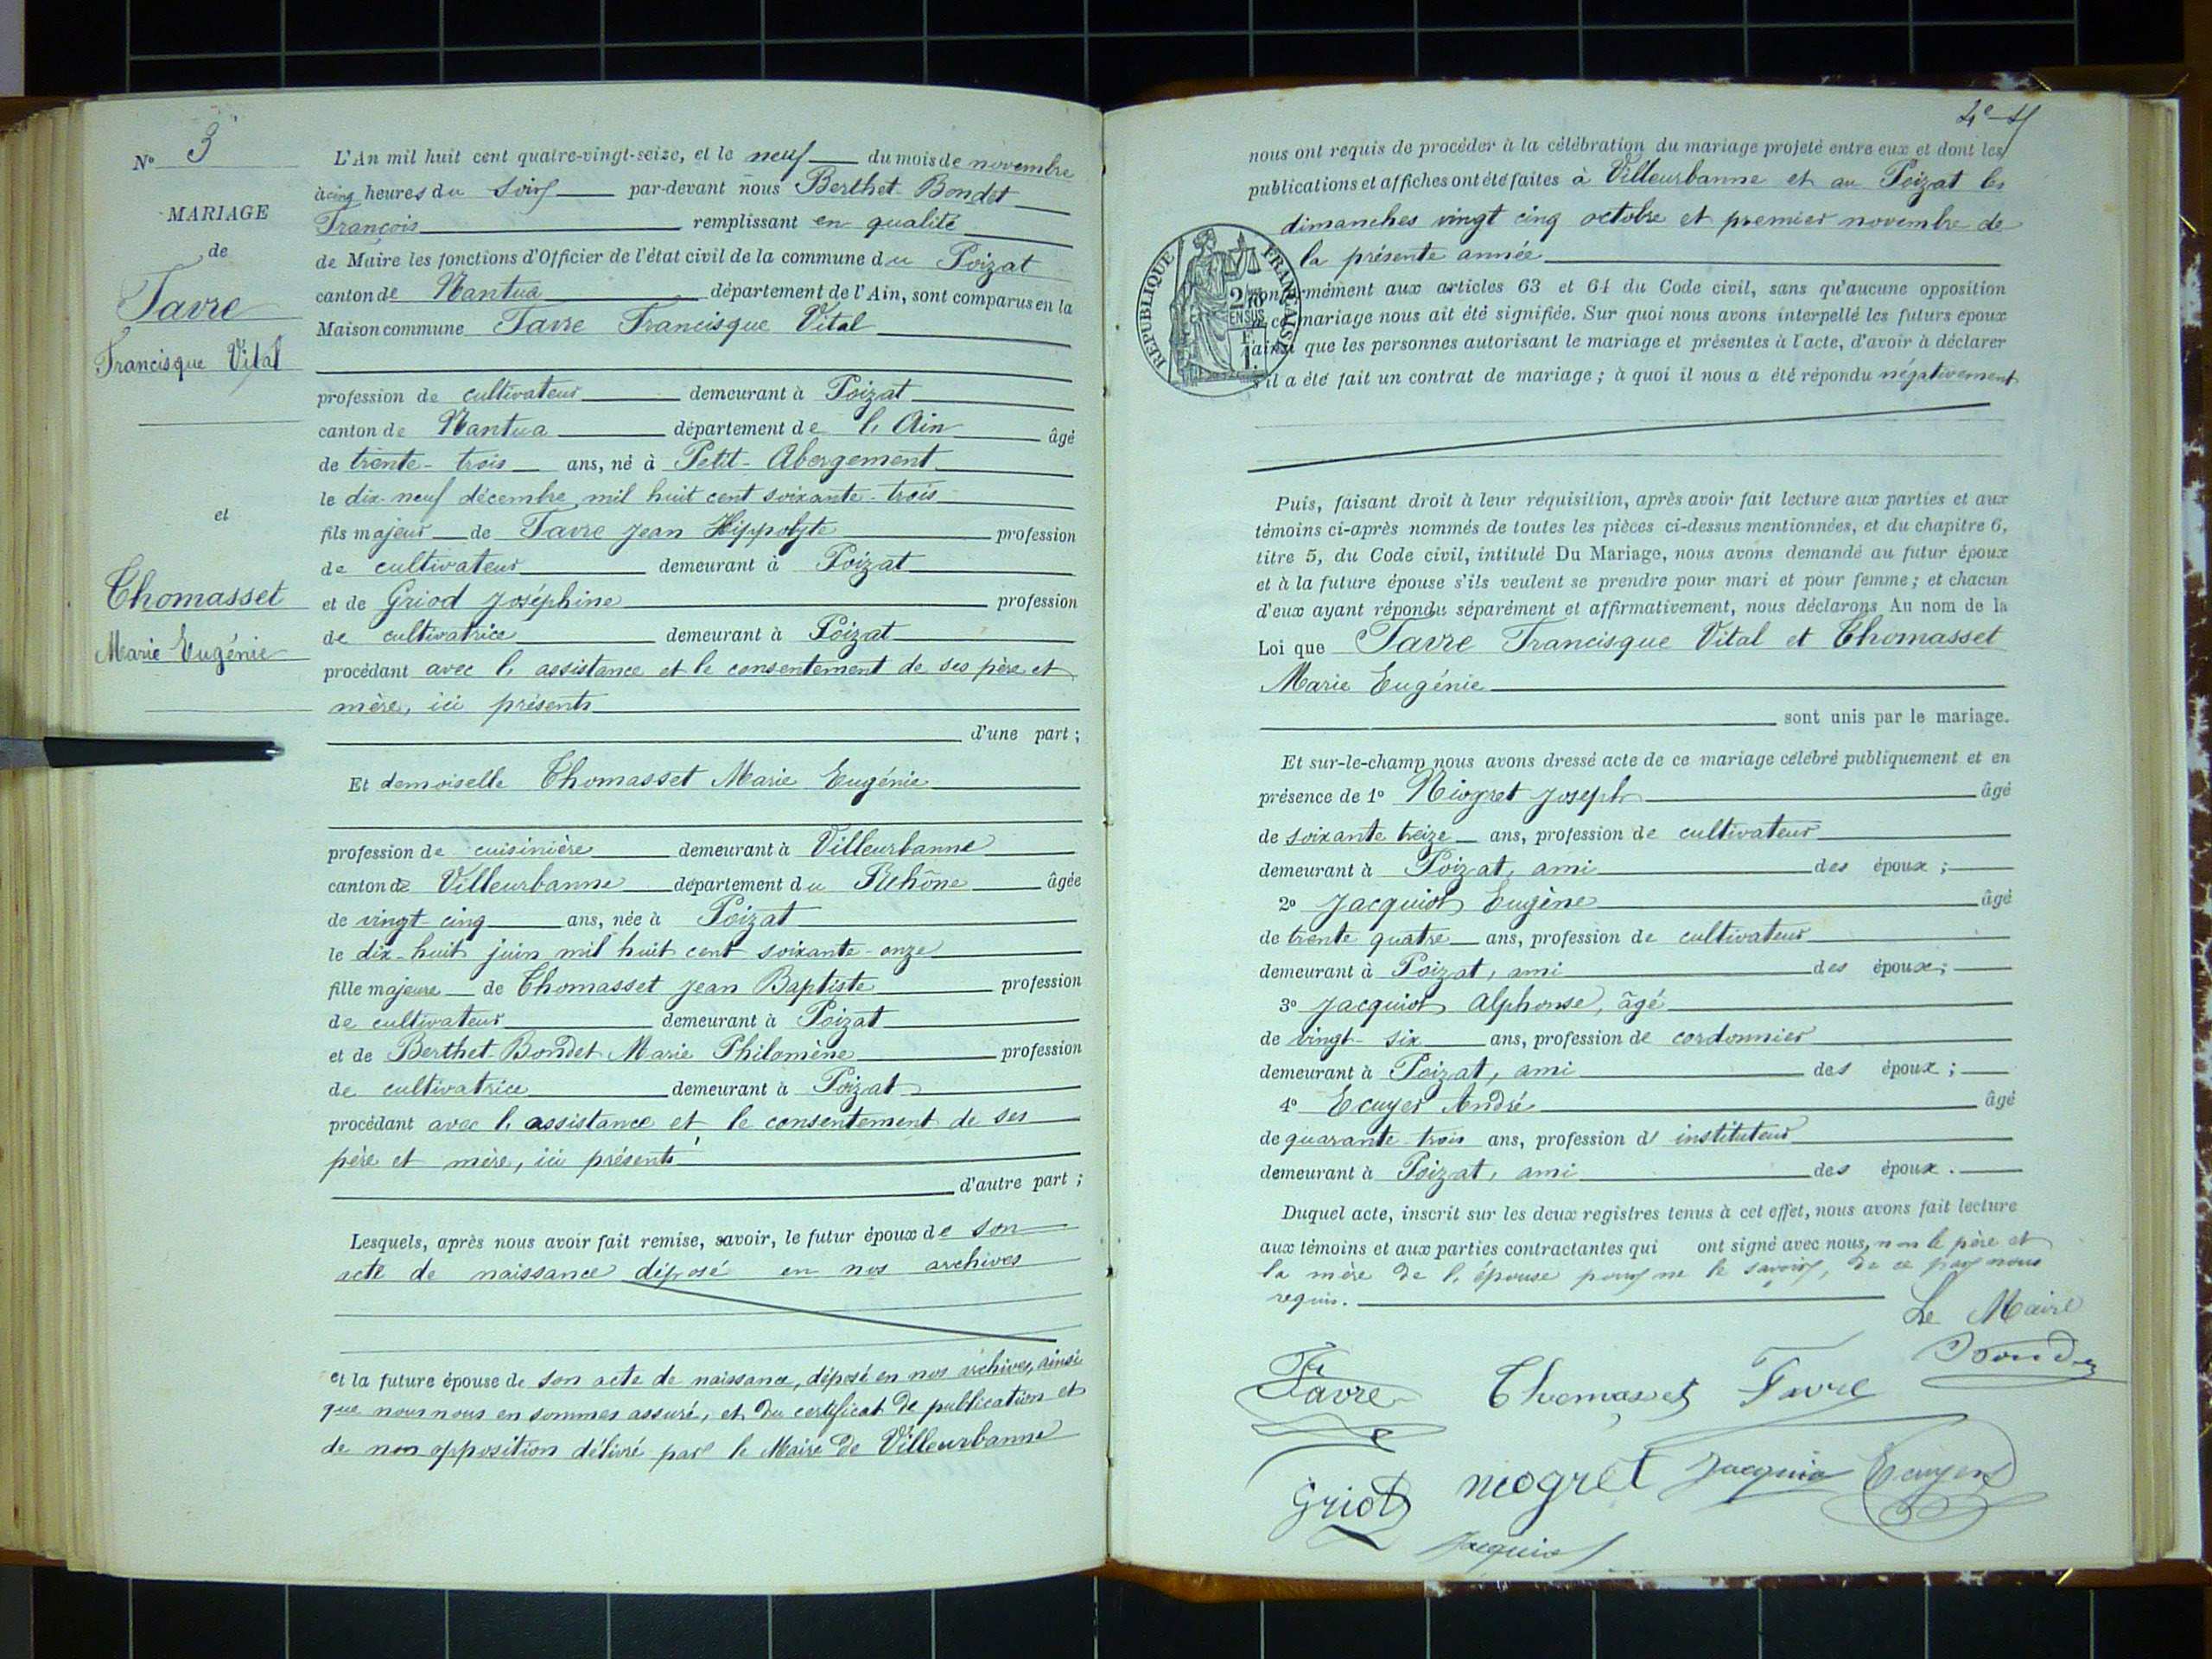 N° 3
MARIAGE
de
Favre
Francisque Vital
et
Thomasset
Marie Eugénie
L'An mil huit cent quatre-vingt-seize, et le neuf du mois de novembre
à cinq heures du soir par-devant nous Berthet-Bondet
François remplissant en qualité
de Maire les fonctions d'Officier de l'état civil de la commune du Poizat
canton de Nantua département de l'Ain, sont comparus en la
Maison commune Favre Francisque Vital
profession de cultivateur demeurant à Poizat
canton de Nantua département de l'Ain âgé
de trente-trois ans, né à Petit-Abergement
le dix-neuf décembre mil huit cent soixante-trois
fils majeur de Favre Jean Hippolyte profession
de cultivateur demeurant à Poizat
et de Griod Joséphine profession
de cultivatrice demeurant à Poizat
procédant avec l'assistance et le consentement de ses père et
mère, ici présents
d'une part ;
Et demoiselle Thomasset Marie Eugénie
profession de cuisinière demeurant à Villeurbanne
canton de Villeurbanne département du Rhône âgée
de vingt-cinq ans, née à Poizat
le dix-huit juin mil huit cent soixante-onze
fille majeure de Thomasset Jean Baptiste profession
de cultivateur demeurant à Poizat
et de Berthet-Bondet Marie Philomène profession
de cultivatrice demeurant à Poizat
procédant avec l'assistance et le consentement de ses
père et mère, ici présents
d'autre part ;
Lesquels, après nous avoir fait remise, savoir, le futur époux de son
acte de naissance déposé en nos archives
et la future épouse de son acte de naissance, déposé en nos archives, ainsi
que nous nous en sommes assuré, et du certificat de publication et
de non opposition délivré par le Maire de Villeurbanne
nous ont requis de procéder à la célébration du mariage projeté entre eux et dont les
publications et affiches ont été faites à Villeurbanne et au Poizat les
dimanches vingt cinq octobre et premier novembre de
la présente année
RÉPUBLIQUE FRANÇAISE
conformément aux articles 63 et 64 du Code civil, sans qu'aucune opposition
à ce mariage nous ait été signifiée. Sur quoi nous avons interpellé les futurs époux
ainsi que les personnes autorisant le mariage et présentes à l'acte, d'avoir à déclarer
s'il a été fait un contrat de mariage ; à quoi il nous a été répondu négativement
Puis, faisant droit à leur réquisition, après avoir fait lecture aux parties et aux
témoins ci-après nommés de toutes les pièces ci-dessus mentionnées, et du chapitre 6,
titre 5, du Code civil, intitulé Du Mariage, nous avons demandé au futur époux
et à la future épouse s'ils veulent se prendre pour mari et pour femme ; et chacun
d'eux ayant répondu séparément et affirmativement, nous déclarons Au nom de la
Loi que Favre Francisque Vital et Thomasset
Marie Eugénie
sont unis par le mariage.
Et sur-le-champ nous avons dressé acte de ce mariage célébré publiquement et en
présence de 1° Niogret Joseph âgé
de soixante treize ans, profession de cultivateur
demeurant à Poizat, ami des époux ;
2° Jacquiot Eugène âgé
de trente quatre ans, profession de cultivateur
demeurant à Poizat, ami des époux ;
3° Jacquiot Alphonse, âgé
de vingt-six ans, profession de cordonnier
demeurant à Poizat, ami des époux ;
4° Ecuyer André âgé
de quarante-trois ans, profession d'instituteur
demeurant à Poizat, ami des époux.
Duquel acte, inscrit sur les deux registres tenus à cet effet, nous avons fait lecture
aux témoins et aux parties contractantes qui ont signé avec nous, non le père et
la mère de l'épouse pour ne le savoir, de ce par nous
requis.
Le Maire
Favre Thomasset Favre
Griod niogret Jacquio Ecuyer
Jacquiot